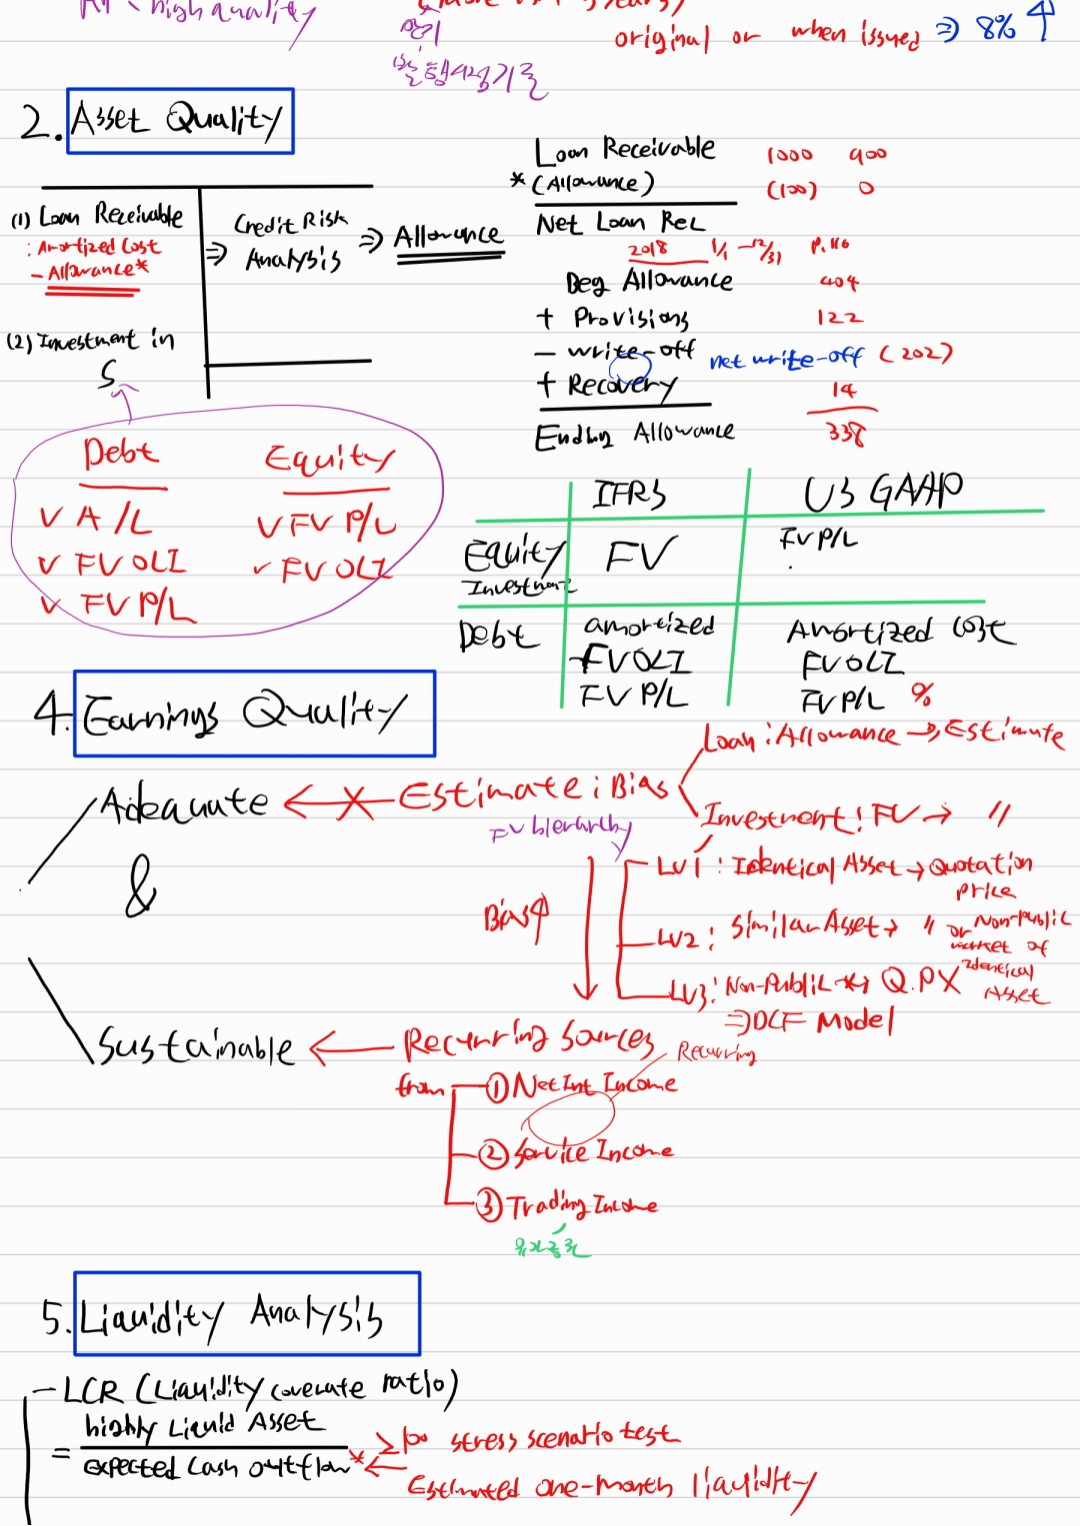 high quality
original or when issued ⇒ 8% ↑
만기
발행시점기준
2. Asset Quality
(1) Loan Receivable
: Amortized Cost
- Allowance*
⇒ Credit Risk Analysis ⇒ Allowance
(2) Investment in
S
Debt
✓ A/C
✓ FVOCI
✓ FV P/L
Equity
✓ FV P/L
✓ FVOCI
Loan Receivable 1000 900
* (Allowance) (100) 0
Net Loan Rec
2018 1/1 ~ 12/31 P.116
Beg Allowance 404
+ Provisions 122
- write-off net write-off (202)
+ Recovery 14
Ending Allowance 338
IFRS US GAAP
Equity Investment FV FV P/L
Debt amortized Amortized Cost
FVOCI FVOCI
FV P/L FV P/L %
4. Earnings Quality
Adequate ← Estimate : Bias
Loan : Allowance → Estimate
Investment : FV → "
FV hierarchy
Bias↑
LV1 : Identical Asset → Quotation price
LV2 : Similar Asset → " or Non-public market of Identical Asset
LV3 : Non-Public → Q.PX
⇒ DCF Model
&
Sustainable ← Recurring Sources
Recurring
from ① Net Int Income
② Service Income
③ Trading Income
5. Liquidity Analysis
- LCR (Liquidity coverate ratio)
= highly Liquid Asset
expected Cash outflow*
≥100 stress scenario test
← Estimated one-month liquidity